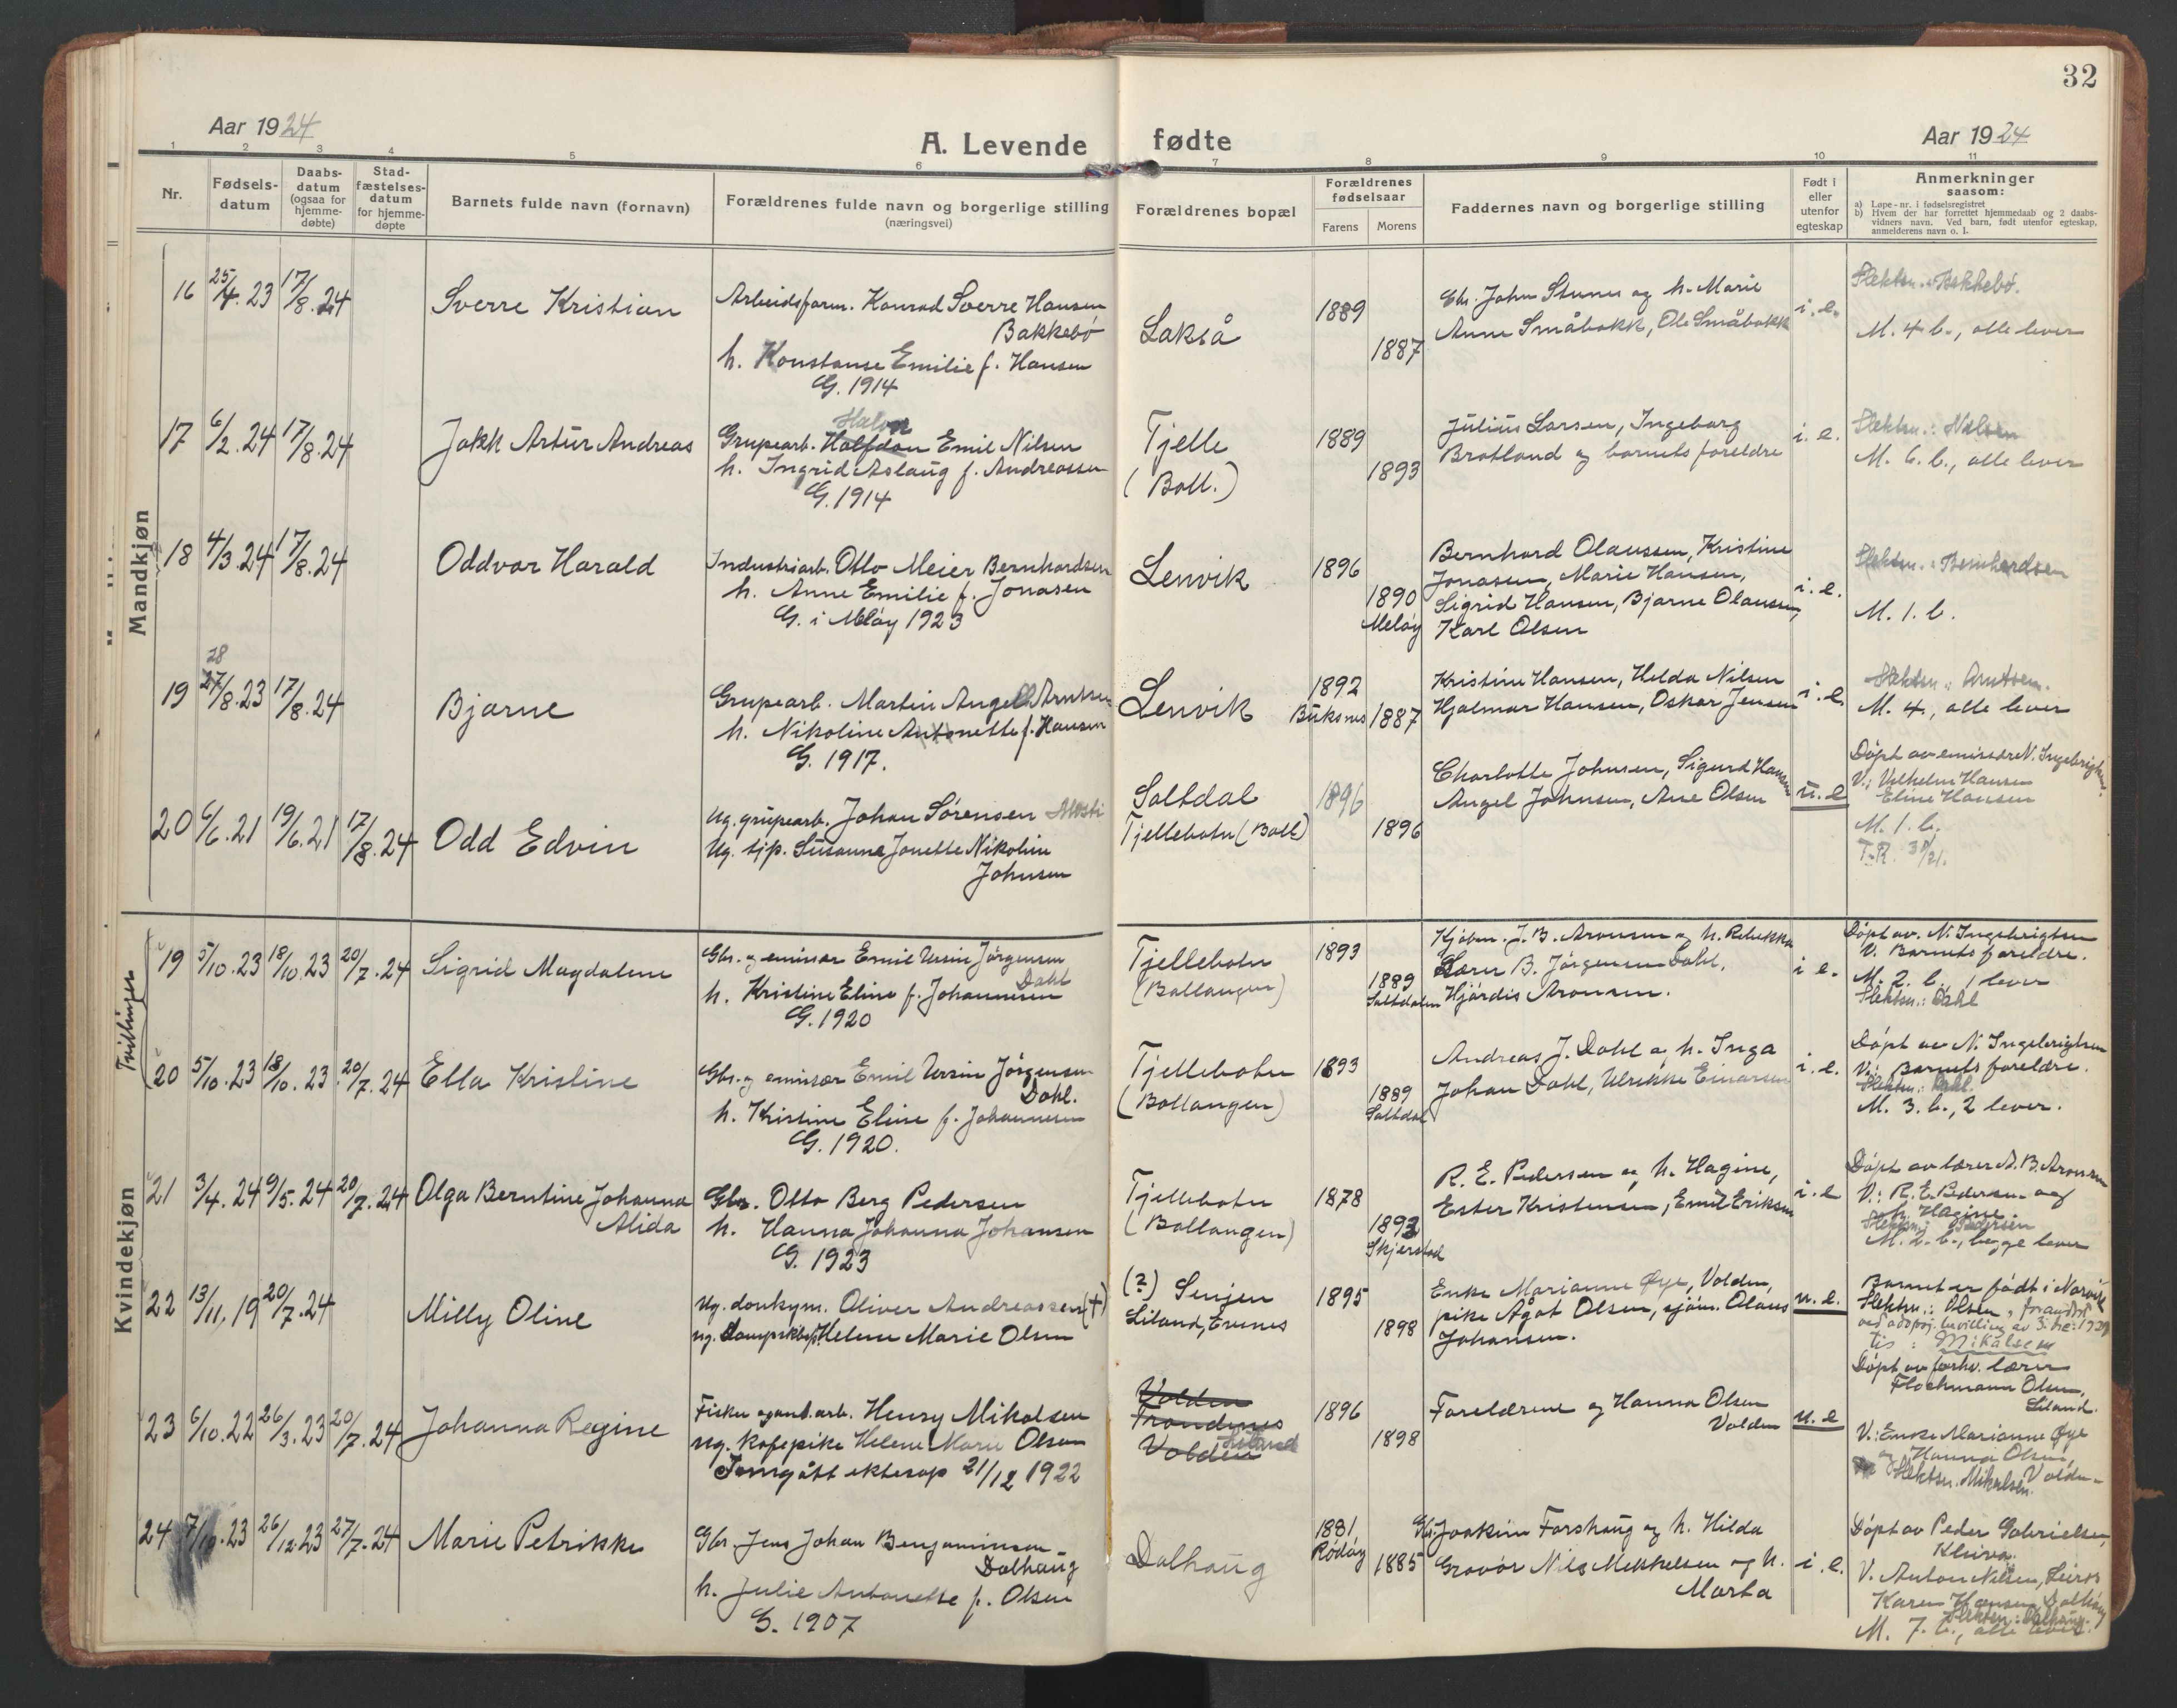 32
Aar 1924
A. Levende fødte
Aar 1924
1 2 3 4 5 6 7 8 9 10 11
Nr.
Fødsels-
datum
Daabs-
datum
(ogsaa for
hjemme-
døbte)
Stad-
fæstelses-
datum
for hjemme-
døpte
Barnets fulde navn (fornavn)
Forældrenes fulde navn og borgerlige stilling
(næringsvei)
Forældrenes bopæl
Forældrenes
fødselsaar
Farens Morens
Faddernes navn og borgerlige stilling
Født i
eller
utenfor
egteskap
Anmerkninger
saasom:
a) Løpe-nr. i fødselsregistret
b) Hvem der har forrettet hjemmedaab og 2 daabs-
vidners navn. Ved barn, født utenfor egteskap,
anmelderens navn o. l.
Mandkjøn
16 25/4.23 17/8.24
Sverre Kristian
Arbeidsform. Konrad Sverre Hansen
Bakkebö
h. Konstanse Emilie f. Hansen
G. 1914
Lakså
1889
1887
Gbr. John Stunes og h. Marie
Anne Småbakk, Ole Småbakk
i. e.
Slektsn.: Bakkebø.
M. 4 b., alle lever
17 6/2.24 17/8.24
Jakk Artur Andreas
Halvor
Grupearb. Halfdan Emil Nilsen
h. Ingrid Aslaug f. Andreassen
G. 1914
Tjelle
(Ball.)
1889
1893
Julius Larsen, Ingeborg
Bratland og barnets foreldre
i. e.
Slektsn.: Nilsen
M. 6. b., alle lever
18 4/3.24 17/8.24
Oddvar Harald
Industriarb. Otto Meier Bernhardsen
h. Anne Emilie f. Jonasen
G. i Meløy 1923
Lenvik
1896
1890
Meløy
Bernhard Olaussen, Kristine
Jonasen, Marie Hansen,
Sigrid Hansen, Bjarne Olaussen,
Karl Olsen
i. e.
Slektsn.: Bernhardsen
M. 1. b.
28
19 27/8.23 17/8.24
Bjarne
Grupearb. Martin Angell Arntsen
h. Nikoline Antonette f. Hansen
G. 1917.
Lenvik
1892
Buksnes 1887
Kristine Hansen, Helda Nilsen
Hjalmar Hansen, Oskar Jensen
i. e.
Slektsn.: Arntsen.
M. 4., alle lever
20 6/6.21 19/6.21 17/8.24
Odd Edvin
Ug. grupearb. Johan Sørensen
Ug. tjp. Susanne Jonette Nikoline
Johnsen
Saltdal
Tjellebotn (Ball)
1896
1896
Charlotte Johnsen, Sigurd Hansen
Angel Johnsen, Ane Olsen
u. e.
Døpt av emissær N. Ingebrigtsen.
V.: Vilhelm Hansen
Eline Hansen
M. 1. b.
Kvindekjøn
Tvillinger
19 5/10.23 18/10.23 20/7.24
Sigrid Magdalene
Gbr. og emissær Emil Ursin Jørgensen
Dahl
h. Kristine Eline f. Johannesen
G. 1920
Tjellebotn
(Ballangen)
1893
1889
Saltdalen
Kjøbm. J. B. Aronsen og h. Rebekka
Lærer B. Jørgensen Dahl,
Hjördis Aronsen.
i e.
Døpt av. N. Ingebrigtsen
V. Barnets foreldre.
M. 2. b., 1 lever
Slektsn.: Dahl
20 5/10.23 18/10.23 20/7.24
Ella Kristine
Gbr. og emissær Emil Ursin Jørgensen
Dahl.
h. Kristine Eline f. Johannesen
G. 1920.
Tjellebotn
(Ballangen)
1893
1889
Saltdal
Andreas J. Dahl og h. Inga
Johan Dahl, Ulrikke Einarsen
i. e.
Døpt av N. Ingebrigtsen
V.: Barnets foreldre.
Slektsn.: Dahl.
M. 3. b., 2 lever.
21 3/4.24 9/5.24 20/7.24
Olga Berntine Johanna
Alida
Gbr. Otto Berg Pedersen
h. Hanna Johanna Johansen
G. 1923
Tjellebotn
(Ballangen)
1878
1893
Skjerstad
R. E. Pedersen og h. Hagine,
Ester Kristensen, Emil Eriksen
i. e
Døpt av lærer A. B. Aronsen
V.: R. E. Pedersen og
h. Hagine.
Slektsn.: Pedersen
M. 2. b., begge lever
22 13/11.19 20/7.24
Milly Oline
Ug. donkym. Oliver Andreassen (†)
ug. Helene Marie Olsen
(?) Senjen
Liland, Evenes
1895
1898
Enke Marianne Øye, Volden,
pike Ågot Olsen, sjøm. Olaus
Johansen.
u. e.
Barnet er født i Narvik
Slektsn.: Olsen, forandret
ved adopsj. bevilling av
til: Mikalsen
23 6/10.22 26/3.23 20/7.24
Johanna Regine
Fisker og anl.arb. Henry Mikalsen
ug. kafépike Helene Marie Olsen
Inngått ektesap 21/12 1922
Volden
Trondenes
Volden Liland
1896
1898
Foreldrene og Hanna Olsen
Volden
u. e
Døpt av forhv. lærer
Flockmann Olsen,
Liland.
V.: Enke Marianne Øye
og Hanna Olsen,
Volden
Slektsn. Mikalsen.
24 7/10.23 26/12.23 27/7.24
Marie Petrikke
Gbr. Jens Johan Benjaminsen
Dalhaug
h. Julie Antonette f. Olsen
G. 1907
Dalhaug
1881
Rødøy
1885
Gbr. Joakim Forshaug og h. Hilda
Gravör Nils Mikkelsen og h.
Marta
i. e.
Døpt av Peder Gabrielsen,
Kleiva.
V. Anton Nilsen, Leiros
Karen Hansen, Dalhaug
Slektsn.: Dalhaug.
M. 7. b., alle lever.